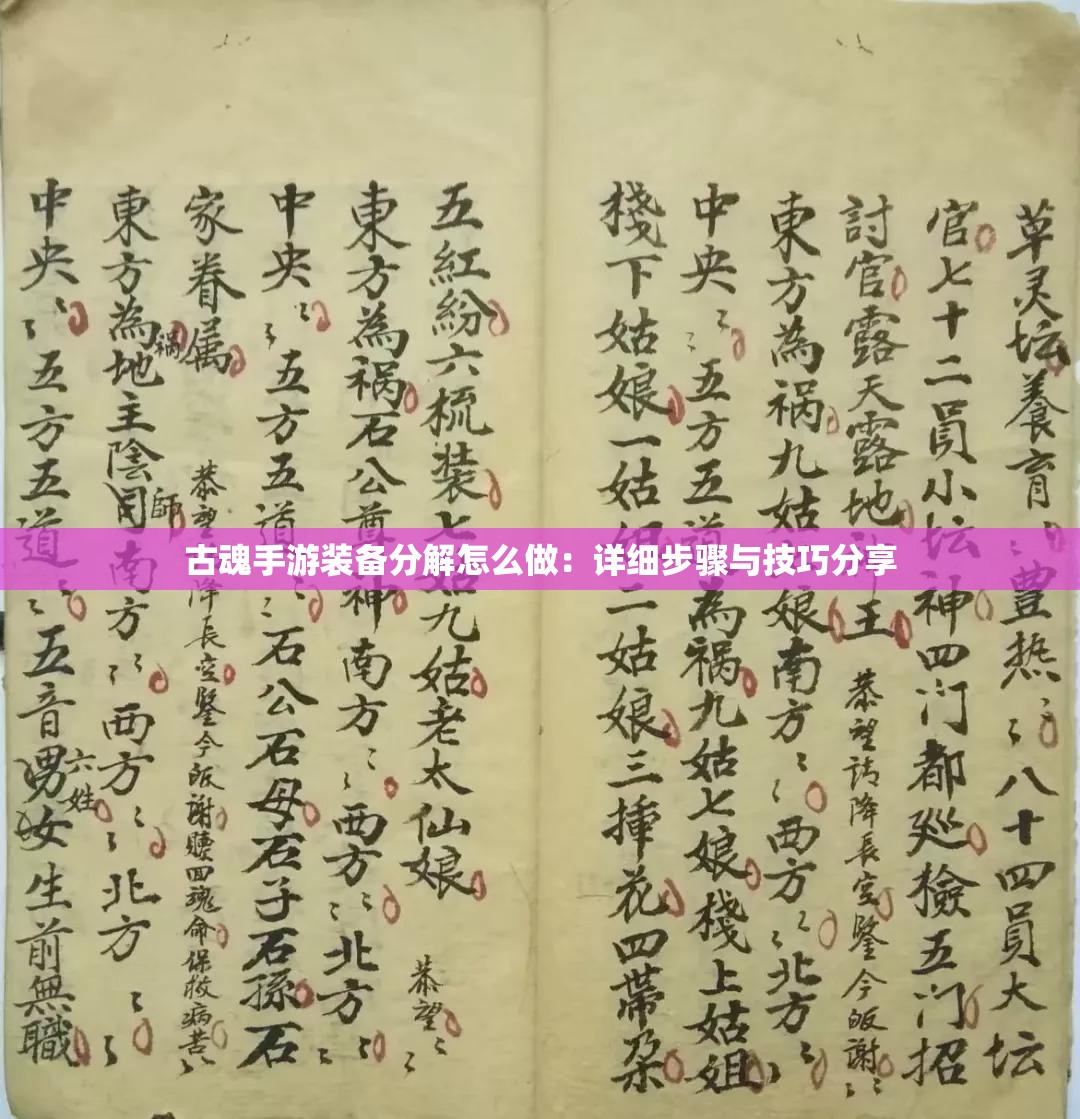 古魂手游装备分解怎么做：详细步骤与技巧分享
草灵坛養育〻豊热〻八十四員大坛
官七十二員小坛神四门都廵檢五门招
討官露天露地 王 恭望請降長空鑒今皈謝〻
東方為祸九姑 娘南方〻西方〻北方〻
中央〻五方五道為祸九姑七娘棧上姑姐
棧下姑娘一姑 二姑娘三挿花四帶朶
五紅紛六梳装七 九姑老太仙娘 恭望〻
東方為祸石公尊神南方〻西方〻北方〻
中央〻五方五道〻石公石母石子石孫石
家眷属 恭望 降長空鑒今皈謝贖回魂命保救病苦〻
東方為祸地主陰 師南方〻西方〻北方〻
中央〻五方五道〻五音男女六姓生前無職